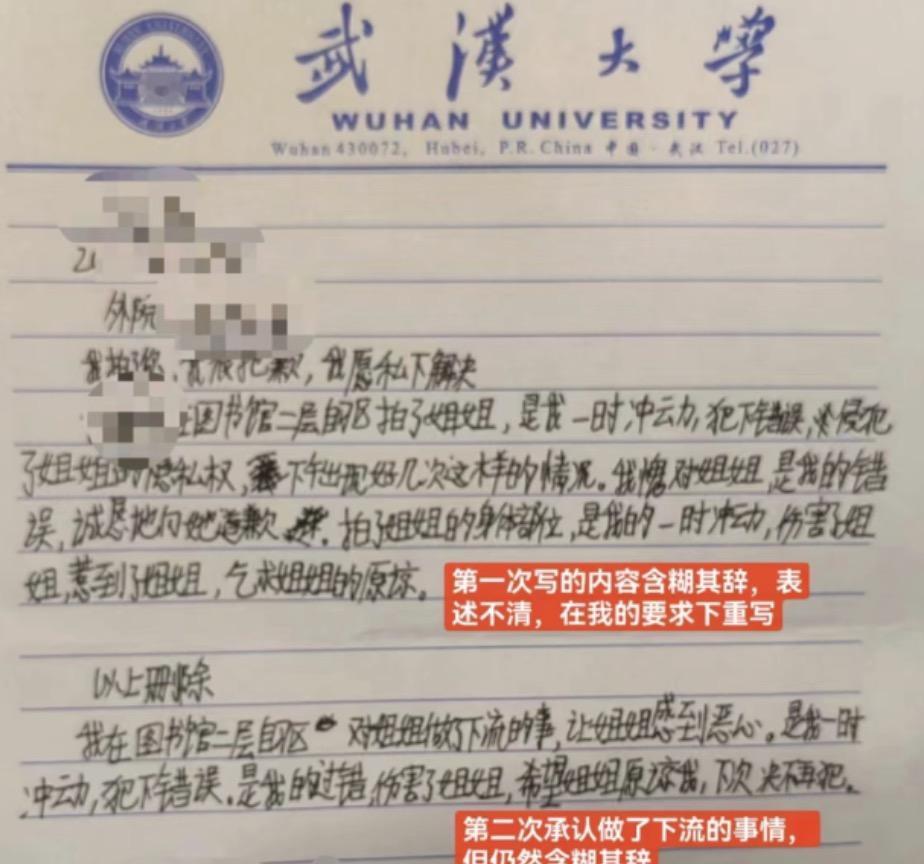 武漢大學
WUHAN UNIVERSITY
Wuhan 430072, Hubei, P.R. China 中国·武汉 Tel.(027)
外院
我愿私下解决
在图书馆二层自习区拍了姐姐，是我一时冲动，犯下错误，侵犯
了姐姐的隐私权，下午出现好几次这样的情况。我愧对姐姐，是我的错
误，诚恳地向她道歉。拍了姐姐的身体部位，是我的一时冲动，伤害了姐
姐，惹到了姐姐，乞求姐姐的原谅。
第一次写的内容含糊其辞，表
述不清，在我的要求下重写
以上删除
我在图书馆二层自习区对姐姐做了下流的事，让姐姐感到恶心。是我一时
冲动，犯下错误。是我的过错，伤害了姐姐，希望姐姐原谅我，下次决不再犯。
第二次承认做了下流的事情，
但仍然含糊其辞